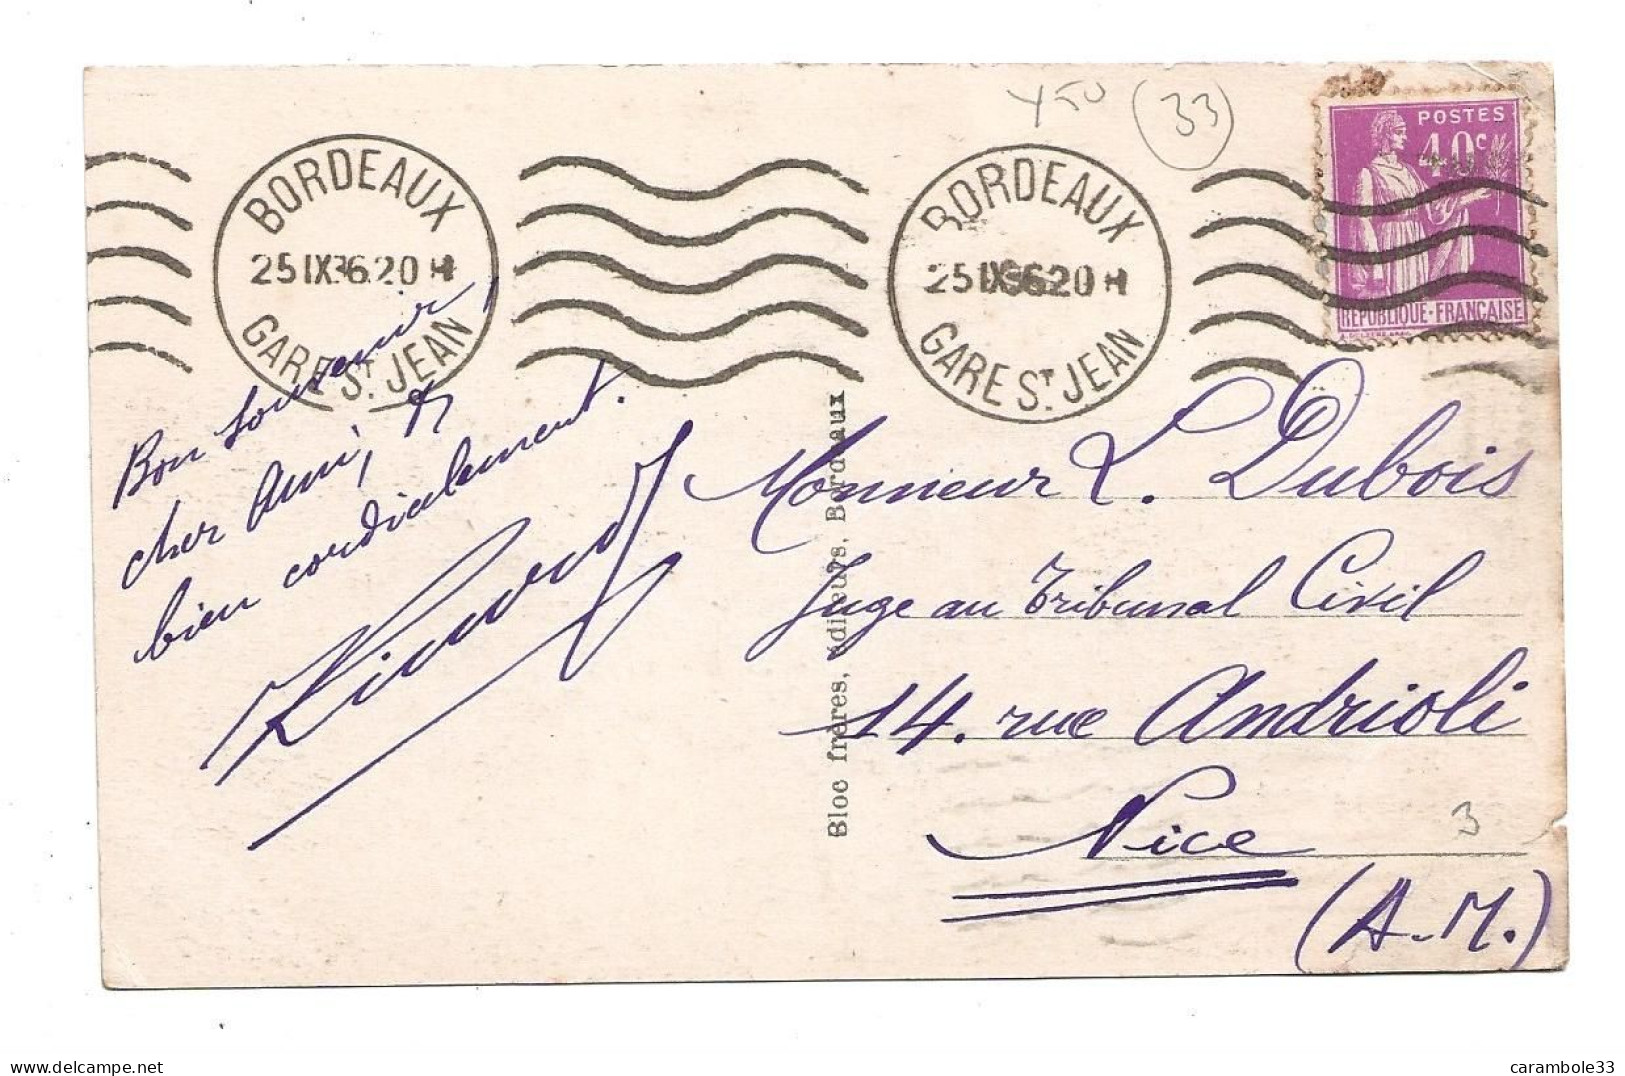 Y50 (33)
POSTES
40c
RÉPUBLIQUE-FRANÇAISE
BORDEAUX
25 IX 36.20 H
GARE ST. JEAN
BORDEAUX
25 IX 36 20 H
GARE ST. JEAN
Bon souvenir,
cher Ami, &
bien cordialement.
Bloc frères, éditeurs, Bordeaux
Monsieur L. Dubois
Juge au Tribunal Civil
14. rue Andrioli
Nice
3
(A.-M.)
delcampe.net
carambole33